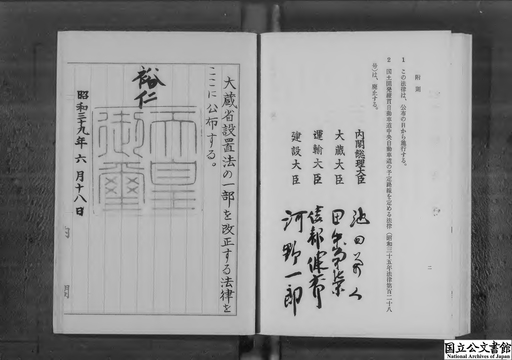 附則
1 この法律は、公布の日から施行する。
2 国土開発縦貫自動車道中央自動車道の予定路線を定める法律(昭和三十五年法律第百二十八
号)は、廃止する。
内閣総理大臣 池田勇人
大蔵大臣 田中角榮
運輸大臣 綾部健太郎
建設大臣 河野一郎
大蔵省設置法の一部を改正する法律を
ここに公布する。
裕仁
天皇御璽
昭和三十九年六月十八日
国立公文書館
National Archives of Japan